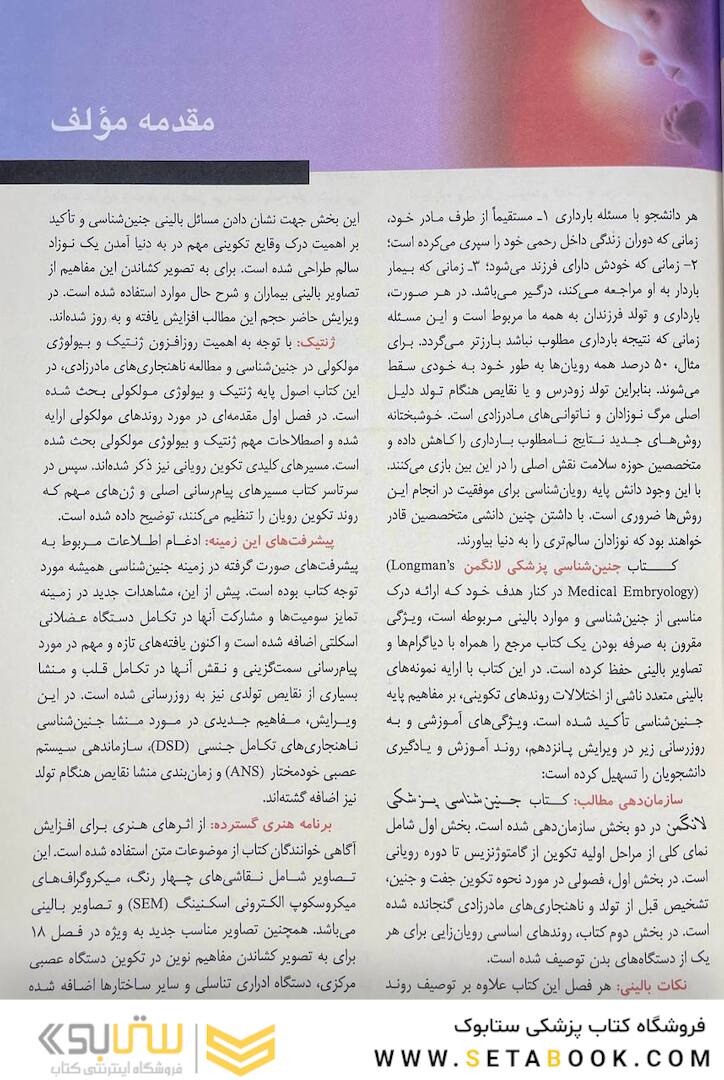 مقدمه مؤلف
هر دانشجو با مسئله بارداری ۱ـ مستقیماً از طرف مـادر خـود،
زمانی که دوران زندگی داخل رحمی خود را سپری می‌کرده است؛
۲- زمانی که خودش دارای فرزند می‌شود؛ ۳ـ زمانی که بیمار
باردار به او مراجعه می‌کند، درگیر می‌باشد. در هر صـورت،
بارداری و تولد فرزندان به همه ما مربوط است و ایـن مسـئله
زمانی که نتیجه بارداری مطلوب نباشد بارزتر می‌گردد. برای
مثال، ۵۰ درصد همه رویان‌ها به طور خـود به خـودی سـقط
می‌شوند. بنابراین تولد زودرس و یا نقایص هنگام تـولد دلیـل
اصلی مرگ نـوزادان و ناتوانی‌های مادرزادی است. خـوشبختانه
روش‌هـای جـدید نـتایج نـامطلوب بـارداری را کـاهش داده و
متخصصین حوزه سلامت نقش اصلی را در این بین بازی می‌کنند.
با این وجود دانش پایه رویان‌شناسی برای موفقیت در انجام ایـن
روش‌ها ضروری است. با داشتن چنین دانشی متخصصین قادر
خواهند بود که نوزادان سالم‌تری را به دنیا بیاورند.
کـــتاب جنین‌شناسی پزشکی لانگمن (Longman's
Medical Embryology) در کنار هدف خـود کـه ارائـه درک
مناسبی از جنین‌شناسی و موارد بالینی مربوطه است، ویـژگی
مقرون به صرفه بودن یک کتاب مرجع را همراه با دیاگرام‌ها و
تصاویر بالینی حفظ کرده است. در این کتاب با ارایه نمونه‌های
بالینی متعدد ناشی از اختلالات روندهای تکوینی، بر مفاهیم پایه
جـنین‌شناسی تأکـید شـده است. ویـژگی‌های آمـوزشی و بـه
روزرسانی زیر در ویرایش پانزدهم، رونـد آمـوزش و یـادگیری
دانشجویان را تسهیل کرده است:
سازمان‌دهی مطالب: کـتاب جـنین‌شناسی پـزشکی
لانگمن در دو بخش سازمان‌دهی شده است. بخش اول شامل
نمای کلی از مراحل اولیه تکوین از گامتوژنزیس تا دوره رویانی
است. در بخش اول، فصولی در مورد نحوه تکوین جفت و جنین،
تشخیص قبل از تولد و ناهنجاری‌های مادرزادی گنجانده شده
است. در بخش دوم کتاب، روندهای اساسی رویان‌زایی برای هر
یک از دستگاه‌های بدن توصیف شده است.
نکات بالینی: هر فصل این کتاب علاوه بر توصیف رونـد
این بخش جهت نشان دادن مسائل بالینی جنین‌شناسی و تأکید
بر اهمیت درک وقایع تکوینی مهم در به دنیا آمدن یک نـوزاد
سالم طراحی شده است. برای به تصویر کشاندن این مفاهیم از
تصاویر بالینی بیماران و شرح حال موارد استفاده شده است. در
ویرایش حاضر حجم این مطالب افزایش یافته و به روز شده‌اند.
ژنتیک: با توجه به اهمیت روزافزون ژنـتیک و بـیولوژی
مولکولی در جنین‌شناسی و مطالعه ناهنجاری‌های مادرزادی، در
این کتاب اصول پایه ژنتیک و بیولوژی مـولکولی بـحث شـده
است. در فصل اول مقدمه‌ای در مورد روندهای مولکولی ارایه
شده و اصطلاحات مهم ژنتیک و بیولوژی مولکولی بحث شده
است. مسیرهای کلیدی تکوین رویانی نیز ذکر شده‌اند. سپس در
سرتاسر کتاب مسیرهای پیام‌رسانی اصلی و ژن‌های مـهم کـه
روند تکوین رویان را تنظیم می‌کنند، توضیح داده شده است.
پیشرفت‌های این زمینه: ادغـام اطـلاعات مـربوط بـه
پیشرفت‌های صورت گرفته در زمینه جنین‌شناسی همیشه مورد
توجه کتاب بوده است. پیش از این، مشاهدات جدید در زمـینه
تمایز سومیت‌ها و مشارکت آنها در تکـامل دسـتگاه عـضلانی
اسکلتی اضافه شده است و اکنون یافته‌های تازه و مهم در مورد
پیام‌رسانی سمت‌گزینی و نـقش آنـها در تکـامل قـلب و مـنشا
بسیاری از نقایص تولدی نیز به روزرسانی شده است. در ایـن
ویـرایش، مـفاهیم جـدیدی در مـورد مـنشا جنین‌شناسی
نـاهنجاری‌های تکـامل جـنسی (DSD)، سـازماندهی سـیستم
عصبی خودمختار (ANS) و زمان‌بندی منشا نقایص هنگام تولد
نیز اضافه گشته‌اند.
برنامه هنری گسترده: از اثـرهای هنـری بـرای افـزایش
آگاهی خوانندگان کتاب از موضوعات متن استفاده شده است. این
تـصاویر شـامل نـقاشی‌های چـهار رنگ، میکروگراف‌هـای
میکروسکوپ الکترونی اسکـنینگ (SEM) و تـصاویر بـالینی
می‌باشد. همچنین تصاویر مناسب جدید به ویژه در فـصل ۱۸
برای به تصویر کشاندن مفاهیم نوین در تکوین دستگاه عصبی
مرکزی، دستگاه ادراری تناسلی و سایر ساختارها اضافه شـده
فروشگاه کتاب پزشکی ستابوک
WWW.SETABOOK.COM
ستابوک
فروشگاه اینترنتی کتاب